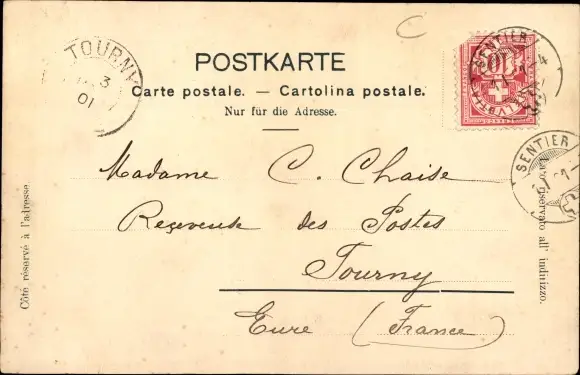 C
POSTKARTE
Carte postale. — Cartolina postale.
Nur für die Adresse.
TOURNY
3
01
SENTIER
10
SENTIER
Madame C. Chaise
Reçeveuse des Postes
Tourny
Eure (France)
Côté réservé à l'adresse.
Lato riservato all' indirizzo.